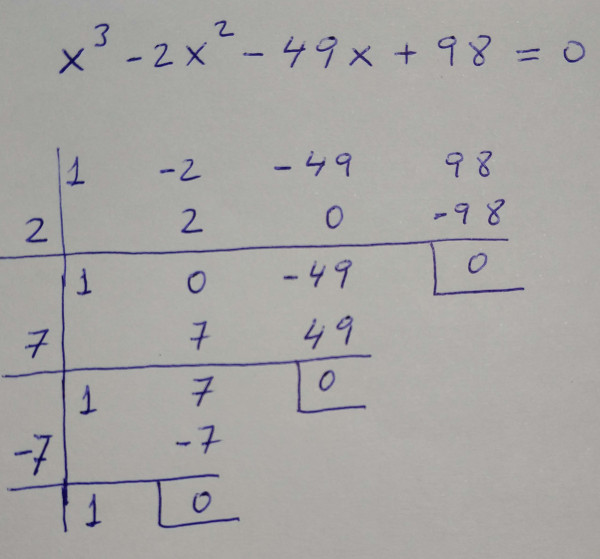 x³ - 2x² - 49x + 98 = 0
1 -2 -49 98
2 2 0 -98
1 0 -49 0
7 7 49
1 7 0
-7 -7
1 0